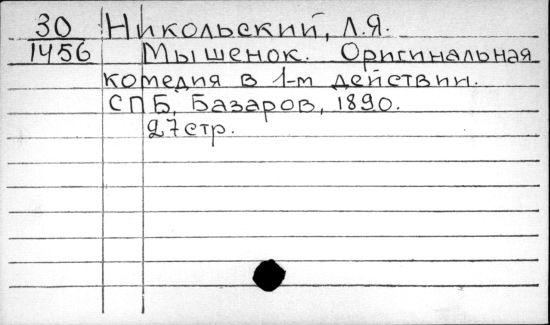 30 Никольский, Л.Я.
1456 Мышенок. Оригинальная
комедия в 1-м действии.
СПБ, Базаров, 1890.
27 стр.